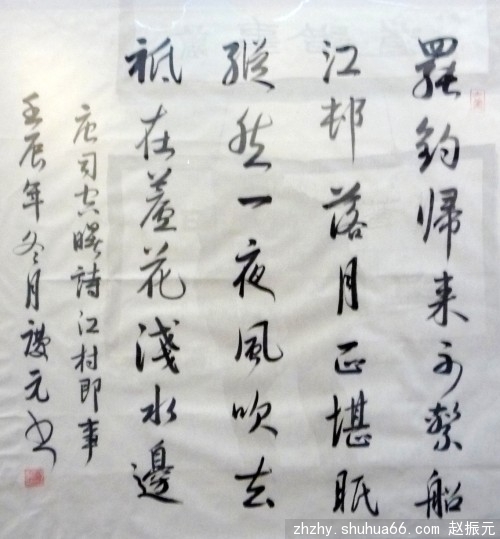 罷釣帰来不繫船
江邨落月正堪眠
縱然一夜風吹去
祗在蘆花淺水邊
唐司空曙詩江村即事
壬辰年冬月元书
zhzhy.shuhua66.com 赵振元